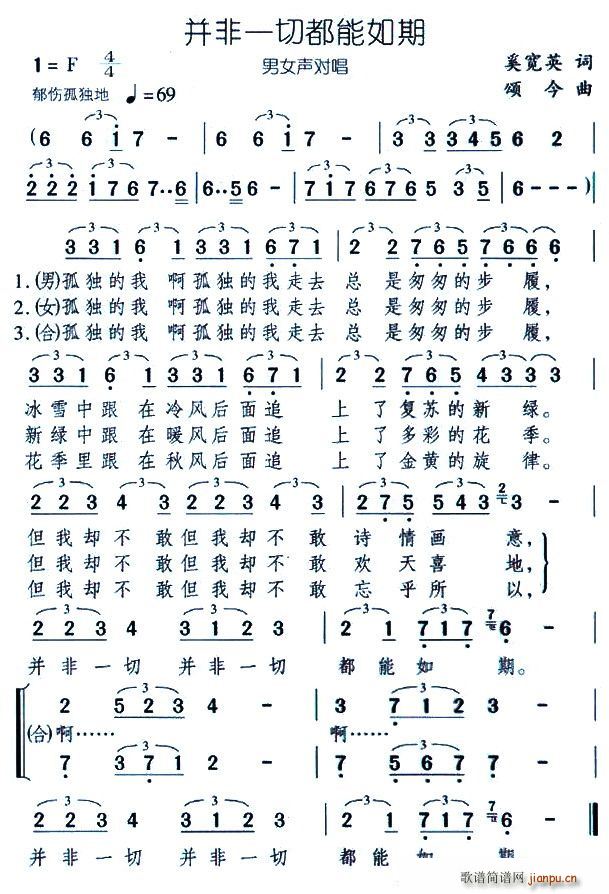 并非一切都能如期
1=F 4/4 男女声对唱 奚宽英 词
郁伤孤独地 ♩=69 颂今 曲
(6 6 6 i 7 - | 6 6 6 i 2 - | 3 3 3 3 4 5 6 2 |
2 2 2 1 7 6 7··6 | 6··5 6 - | 7 1 7 6 7 6 5 3 5 | 6 - - - )
3 3 1 6 1 3 3 1 6 7 1 | 2 2 7 6 5 7 6 6 6 |
1.(男)孤独的我 啊孤独的我走去 总 是匆匆的步 履,
2.(女)孤独的我 啊孤独的我走去 总 是匆匆的步 履,
3.(合)孤独的我 啊孤独的我走去 总 是匆匆的步 履,
3 3 1 6 1 3 3 1 6 7 1 | 2 2 7 6 5 4 3 3 3 |
冰雪中跟 在冷风后面追 上了复苏的新绿。
新绿中跟 在暖风后面追 上了多彩的花季。
花季里跟 在秋风后面追 上了金黄的旋律。
2 2 3 4 3 2 2 3 4 3 | 2 2 7 5 5 4 3 2 |
但我却不敢但我却不敢 诗情画意,
但我却不敢但我却不敢 欢天喜地,
但我却不敢但我却不敢 忘乎所以,
2 2 3 4 3 1 2 3 | 2 1 7 1 7 7 6 - |
并非一切 并非一切 都能如期。
2 5 2 3 4 - | 3 7 1 2 3 - |
(合)啊…… 啊……
7 3 7 1 2 - | 7 5 6 7 7 - |
2 2 3 4 3 1 2 3 | 2 1 7 1 7 7 6 -
并非一切 并非一切 都能如期
歌谱简谱网
jianpu.cn